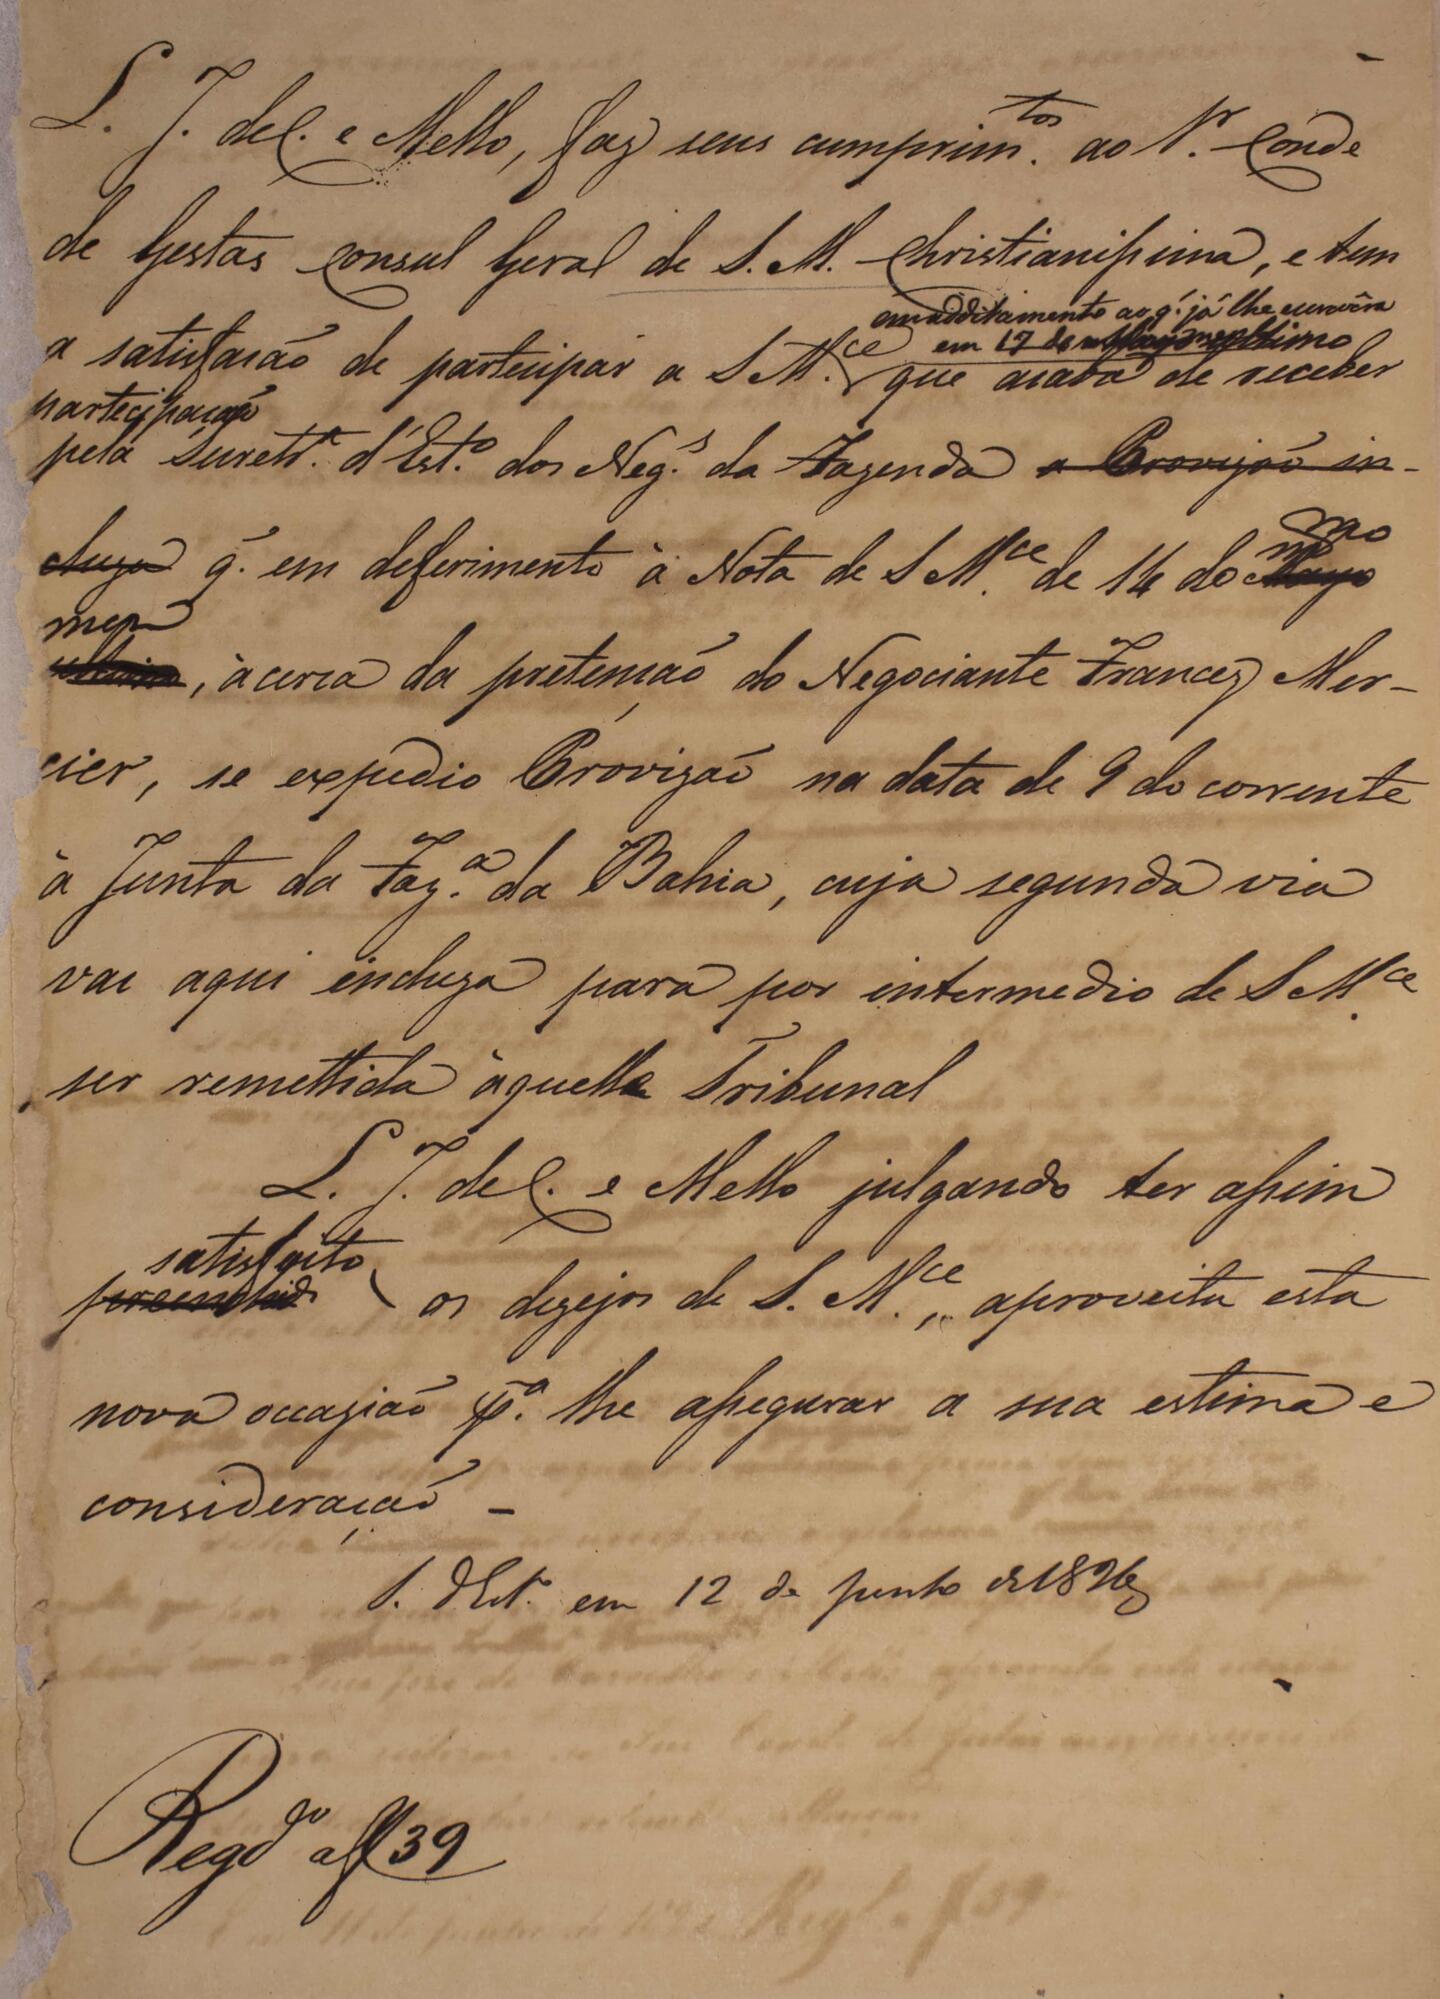 L. J. de C. e Mello, faz seus cumprim.tos ao Sr. Conde
de Gestas Consul Geral de S. M. Christianissima, e tem
em additamento ao q' já lhe escrevêra
em 17 de Mayo ultimo
a satisfacão de participar a S M.ce que acaba de receber
participacão
pela Secretr.a d'Est.o dos Neg.s da Fazenda a Provizão in-
cluza q' em defferimento à Nota de S M.ce de 14 do mmo Mayo
mez
ultimo, àcerca da pretenção do Negociante Francez Mer-
cier, se expedio Provizaõ na data de 9 do corrente
à Junta da Faz.a da Bahia, cuja segunda via
vai aqui incluza para por intermedio de S M.ce
ser remettida àquelle Tribunal
L. J. de C. e Mello julgando ter assim
satisfeito
preenchido os dezejos de S. M.ce, aproveita esta
nova occazião p.a lhe assegurar a sua estima e
consideração -
S. d'Est.o em 12 de Junho de 1826
Regdo a f 39